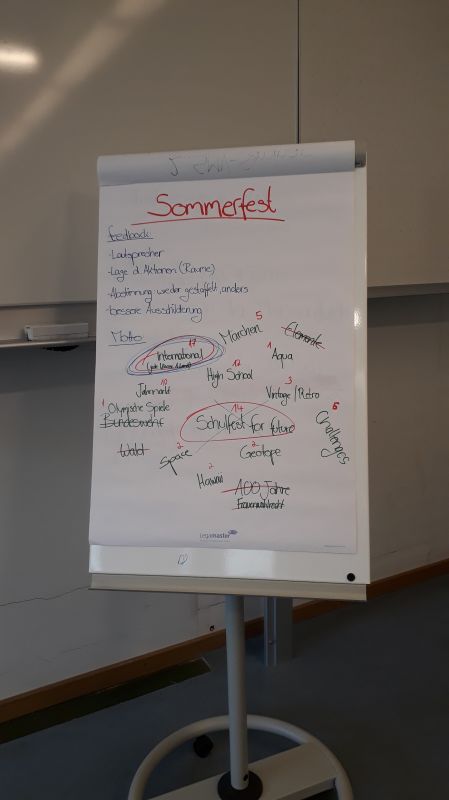 Sommerfest
Feedback
- Lautsprecher
- Lage d. Aktionen (Räume)
- Abstimmung wieder gestaffelt, anders
- bessere Ausschilderung
Motto:
5
Märchen
Elemente
17
International
1
Aqua
12
High School
10
Jahrmarkt
3
Vintage/Retro
1
Olympische Spiele
Bundeswehr
14
Schulfest for future
6
Challenges
Wald
2
Space
2
Geotope
2
Hawaii
100 Jahre
Frauenwahlrecht
Legamaster